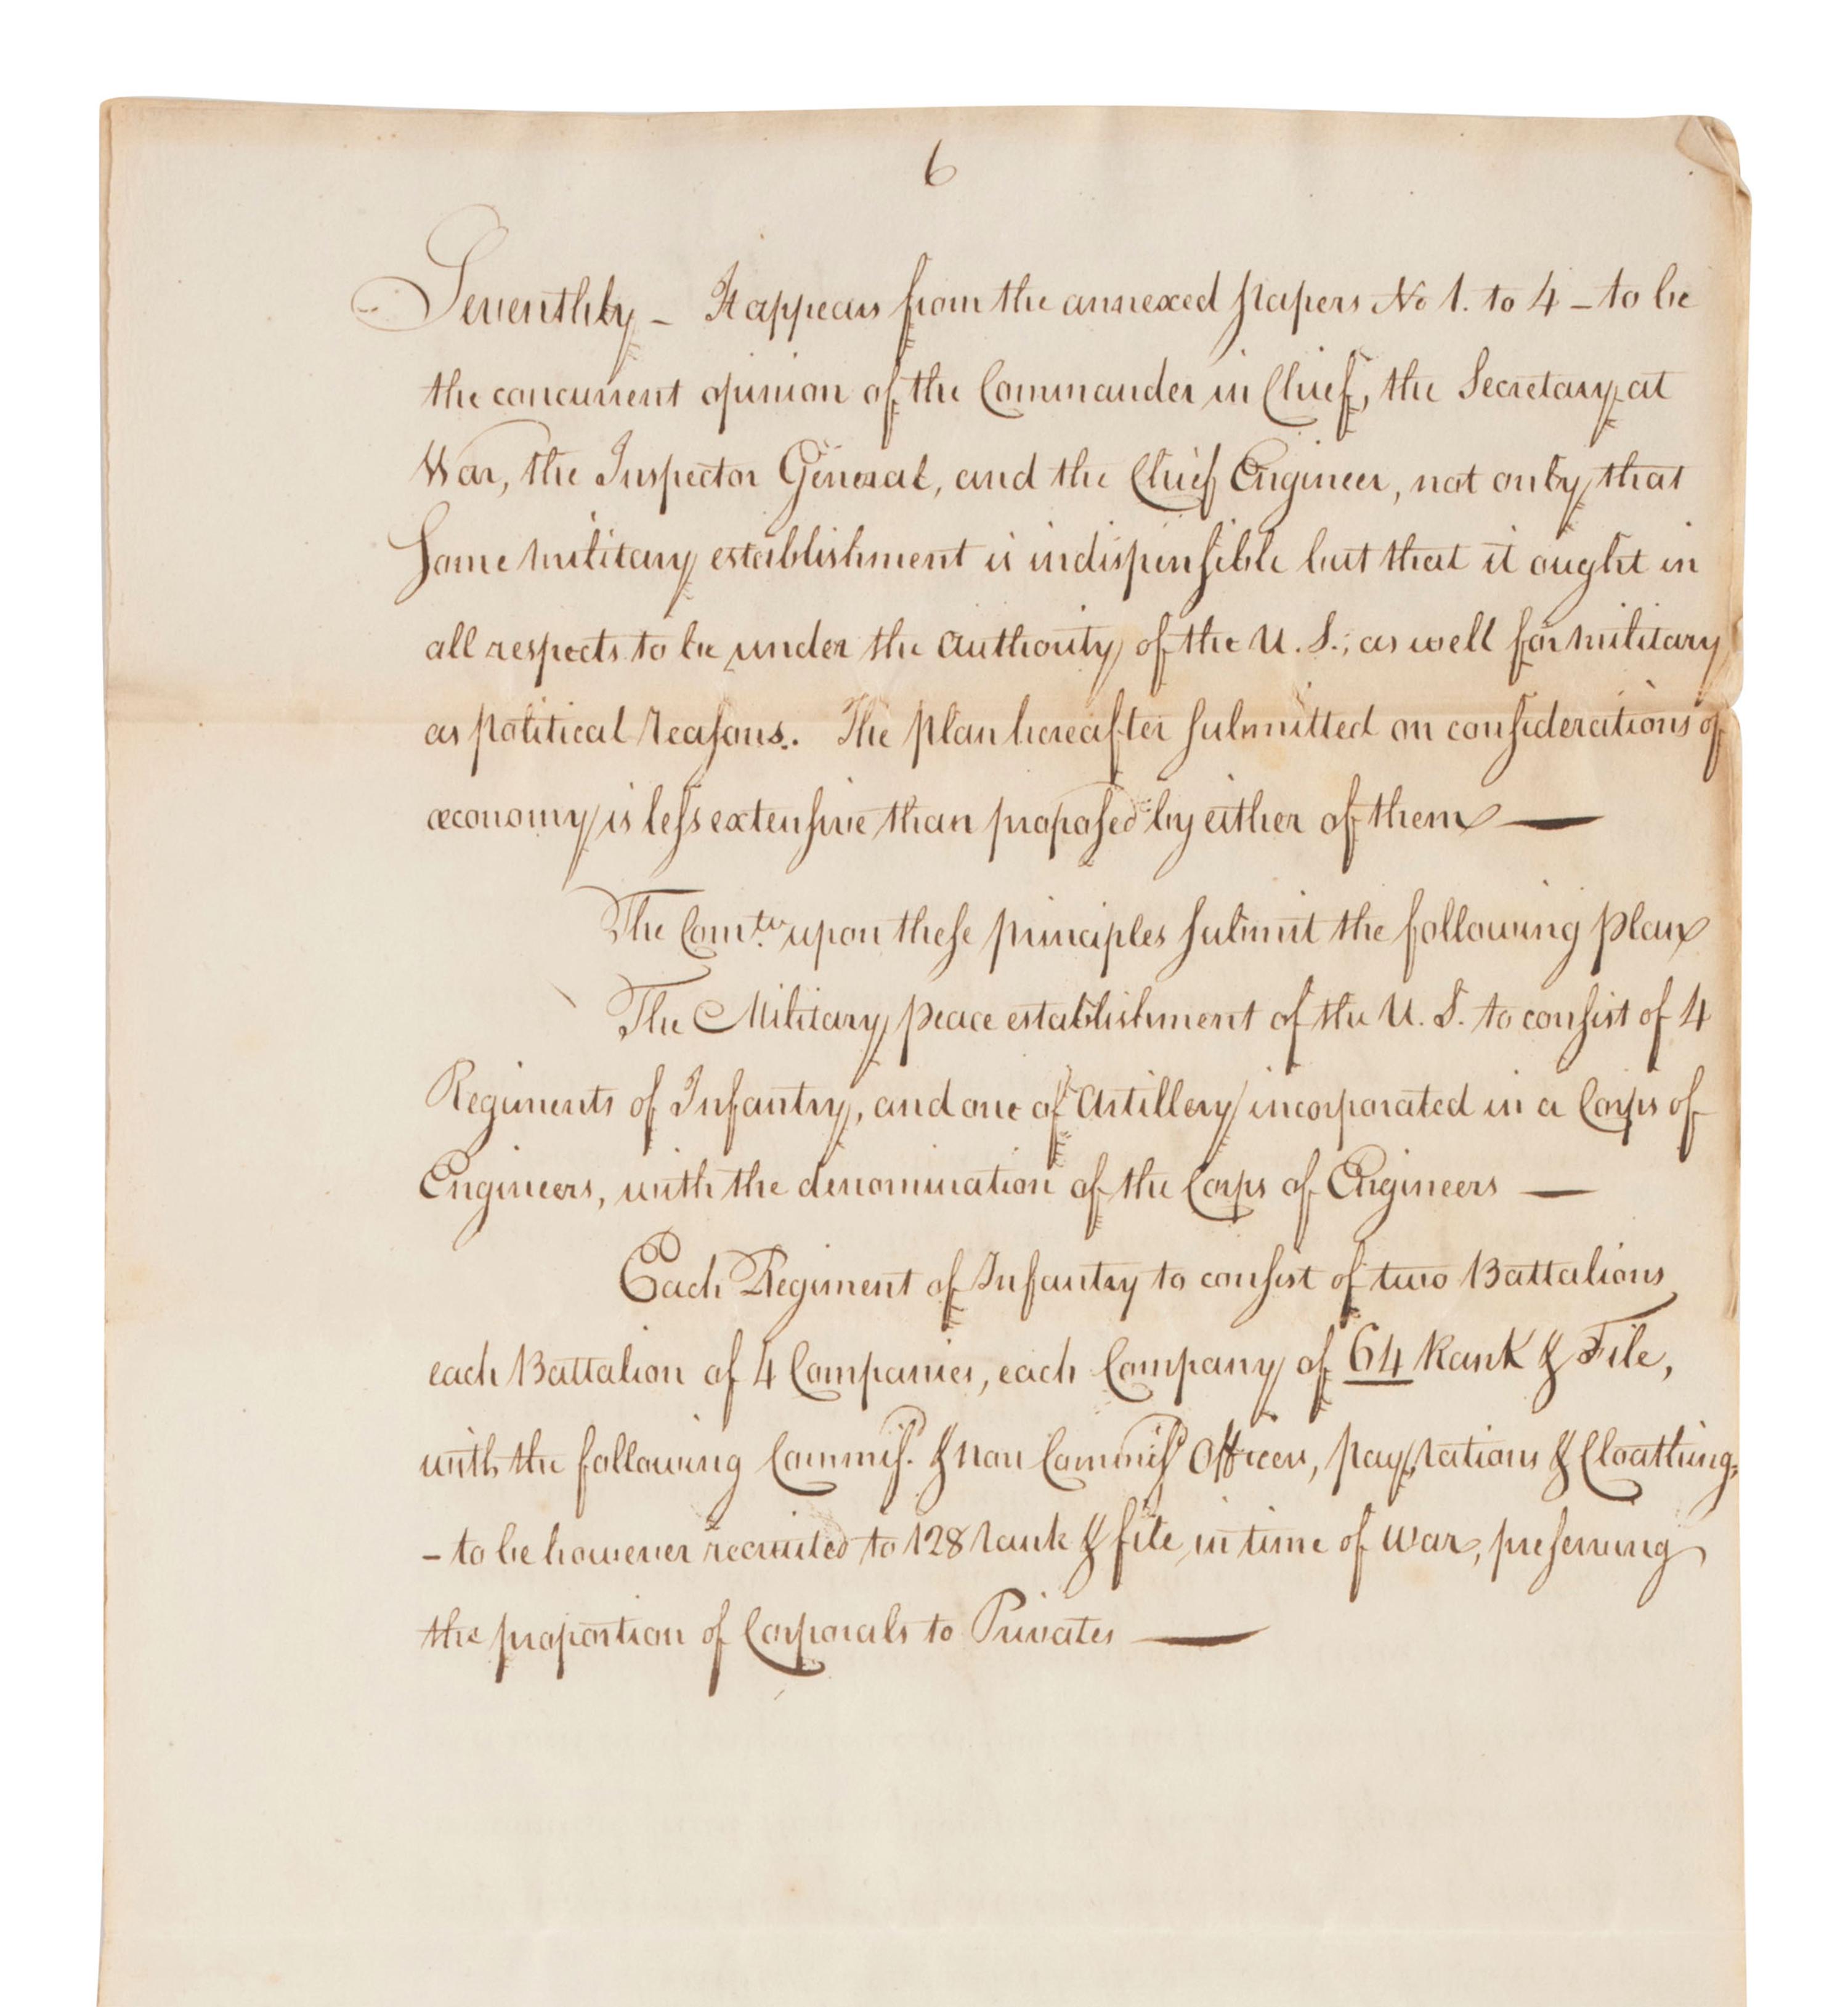 6
Seventhly – It appears from the annexed papers No 1. to 4 – to be
the concurrent opinion of the Commander in Chief, the Secretary at
War, the Inspector General, and the Chief Engineer, not only that
some military establishment is indispensible but that it ought in
all respects to be under the authority of the U. S.; as well for military
as political reasons. The plan hereafter submitted on considerations of
œconomy is less extensive than proposed by either of them —
The Com.tee upon these principles submit the following plan
The Military peace establishment of the U. S. to consist of 4
Regiments of Infantry, and one of Artillery incorporated in a Corps of
Engineers, with the denomination of the Corps of Engineers —
Each Regiment of Infantry to consist of two Battalions
each Battalion of 4 Companies, each Company of 64 Rank & File,
with the following Commiss.d & non Commiss.d Officers, pay, rations & Cloathing,
– to be however recruited to 128 rank & file in time of war, preserving
the proportion of Corporals to Privates —